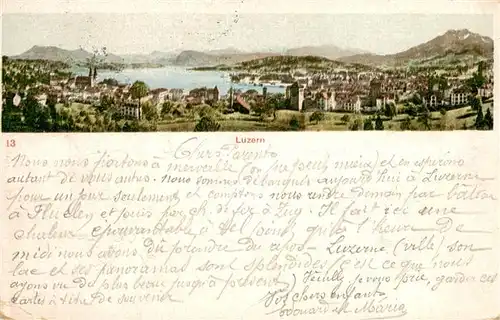 13
Luzern
Chers Parents
Nous nous portons à merveille (on ne peut mieux) et en espérons
autant de vous autres. Nous sommes débarqués aujourd'hui à Luzerne
pour un jour seulement et comptons nous rendre demain par bateau
à Fluelen et puis par ch. de fer à Zug. Il fait ici une
chaleur épouvantable à tel point qu'à l'heure de
midi nous avons dû prendre du repos. Luzerne (ville) son
lac et ses panoramas sont splendides (c'est ce que nous
ayons vu de plus beau jusqu'à présent) Veuillez je vous prie, garder ces
cartes à titre de souvenir
Vos chers enfants
Edouard et Maria